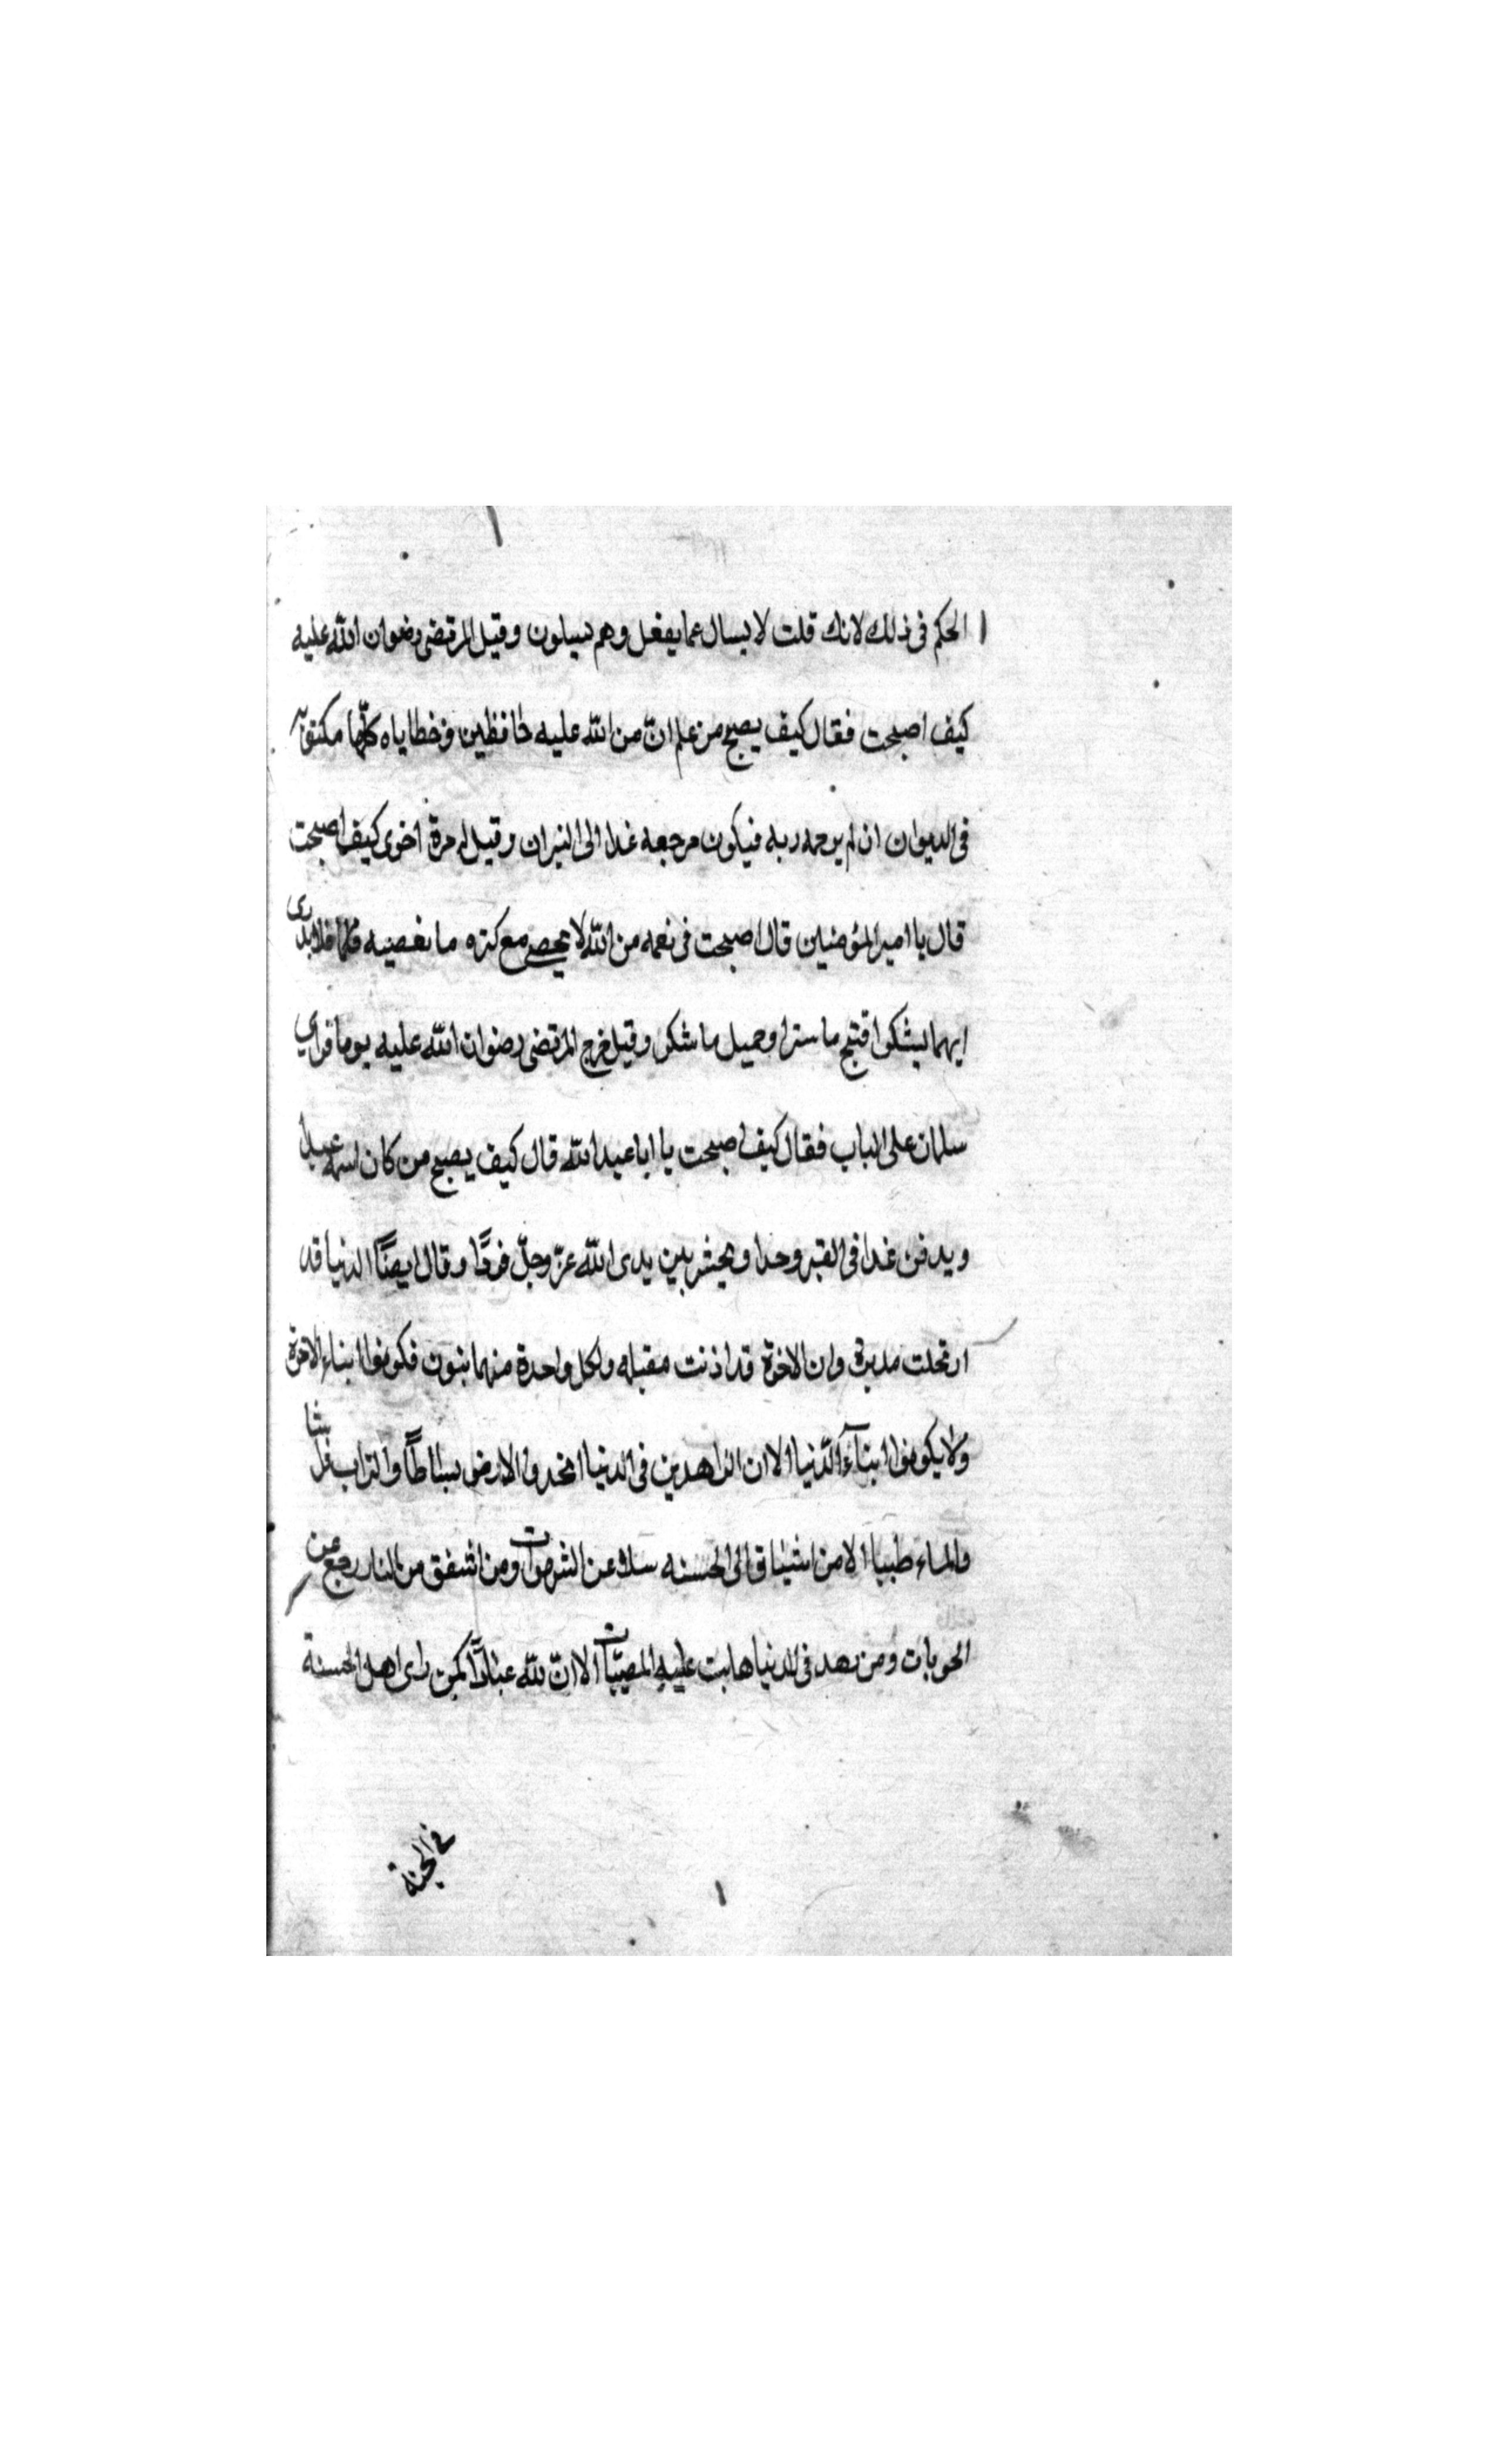 الحكم فى ذلك لانك قلت لا يسال عما يفعل وهم يسيلون وقيل المرتضى رضوان الله عليه
كيف اصبحت فقال كيف يصبح من علم انّ من الله عليه حافظين وخطاياه كلّها مكتوبة
فى الديوان ان لم يرحمه ربه فيكون مرجعه غدا الى النيران وقيل له مرة اخرى كيف اصبحت
قال يا امير المؤمنين قال اصبحت فى نعمه من الله لا يحصى مع كثره ما نعصيه فلا ندرى
ايهما يشكوا قبيح ما سترا وجميل ما شكر وقيل خرج المرتضى رضوان الله عليه يوما فراي
سلمان على الباب فقال كيف اصبحت يا ابا عبد الله قال كيف يصبح من كان اسمه عبدا
ويدفن غدا فى القبر وحدا ويحشر بين يدى الله عزّ وجلّ فردًا وقال ايضًا الدنيا قد
ارتحلت مدبرة وان الاخرة قد اذنت مقبله ولكل واحدة منهما بنون فكونوا ابناء الاخرة
ولا يكونوا ابنآء الدّنيا الا ان الزاهدين فى الدنيا اتخذوا الارض بساطًا والتراب فراشا
والماء طيبا الا من اشتاق الى الحسنه سلا عن الشهوات ومن اشفق من النار رجع عن
الحوبات ومن زهد فى الدنيا هابت عليه المصيبات الا انّ لله عبادًا كمن راى اهل الحسنة
فى الجنة